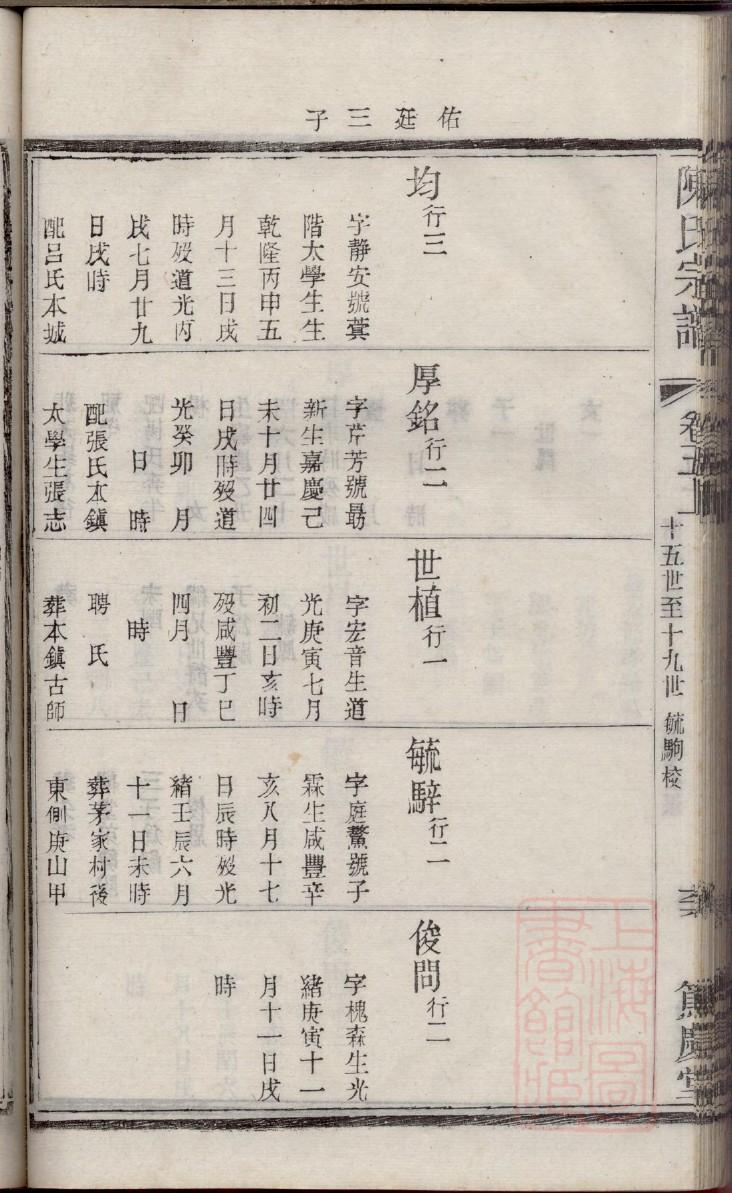 佑廷三子
均行三
字靜安號蓂
階太學生生
乾隆丙申五
月十三日戌
時殁道光丙
戌七月廿九
日戌時
配呂氏本城
厚銘行二
字芹芳號勗
新生嘉慶己
未十月廿四
日戌時殁道
光癸卯 月
日 時
配張氏本鎮
太學生張志
世植行一
字宏音生道
光庚寅七月
初二日亥時
殁咸豐丁巳
四月 日
時
聘 氏
葬本鎮古師
毓騂行二
字庭鰲號子
霖生咸豐辛
亥八月十七
日辰時殁光
緒壬辰六月
十一日未時
葬茅家村後
東側庚山甲
俊問行二
字槐森生光
緒庚寅十一
月十一日戌
時
陳氏宗譜
卷五
十五世至十九世 毓駒校
篤慶堂
上海圖
書館